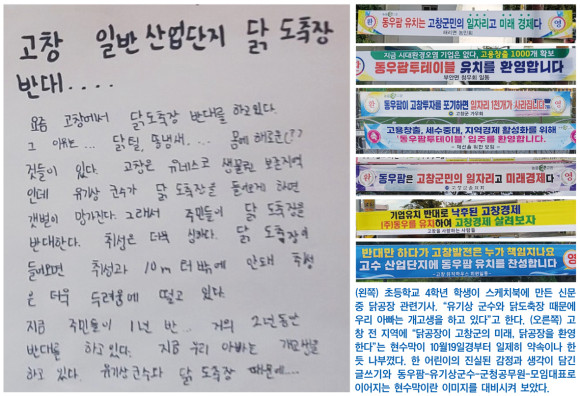 고창 일반산업단지 닭 도축장
반대....
요즘 고창에서 닭도축장 반대를 하고있다.
그 이유는... 닭털, 똥냄새... 몸에 해로운(??
것들이 있다. 고창은 유네스코 생물권 보존지역
인데 유기상 군수가 닭 도축장을 들여온게 하면
갯벌이 망가진다. 그래서 주민들이 닭 도축장을
반대한다. 취성은 더욱 심하다. 닭 도축장이
들어오면 취성과 10m 터 밖에 안돼 취성
은 더욱 두려움에 떨고 있다.
지금 주민들이 1년 반... 거의 2년동안
반대를 하고 있다. 지금 우리 아빠는 개고생을
하고 있다. 유기상군수와 닭 도축장 때문에....
환 동우팜 유치는 고창군민의 일자리고 미래 경제다 영
지금 시대환경오염 기업은 없다. 고용창출 1000개 확보
동우팜투테이블 유치를 환영합니다
부안면 청우회 일동
환 동우팜이 고창투자를 포기하면 일자리 1천개가 사라집니다 영
고용창출, 세수증대, 지역경제 활성화를 위해
'동우팜투테이블' 입주를 환영합니다.
환 동우팜은 고창군민의 일자리고 미래경제다 영
기업유치 반대로 낙후된 고창경제
(주)동우를 유치하여 고창경제 살려보자
반대만 하다가 고창발전은 누가 책임지나요
고수 산업단지에 동우팜 유치를 찬성합니다
(왼쪽) 초등학교 4학년 학생이 스케치북에 만든 신문
중 닭공장 관련기사. “유기상 군수와 닭도축장 때문에
우리 아빠는 개고생을 하고 있다”고 한다. (오른쪽) 고
창 전 지역에 “닭공장이 고창군의 미래, 닭공장을 환영
한다”는 현수막이 10월19일경부터 일제히 약속이나 한
듯 나부꼈다. 한 어린이의 진실된 감정과 생각이 담긴
글쓰기와 동우팜-유기상군수-군청공무원-모임대표로
이어지는 현수막이란 이미지를 대비시켜 보았다.